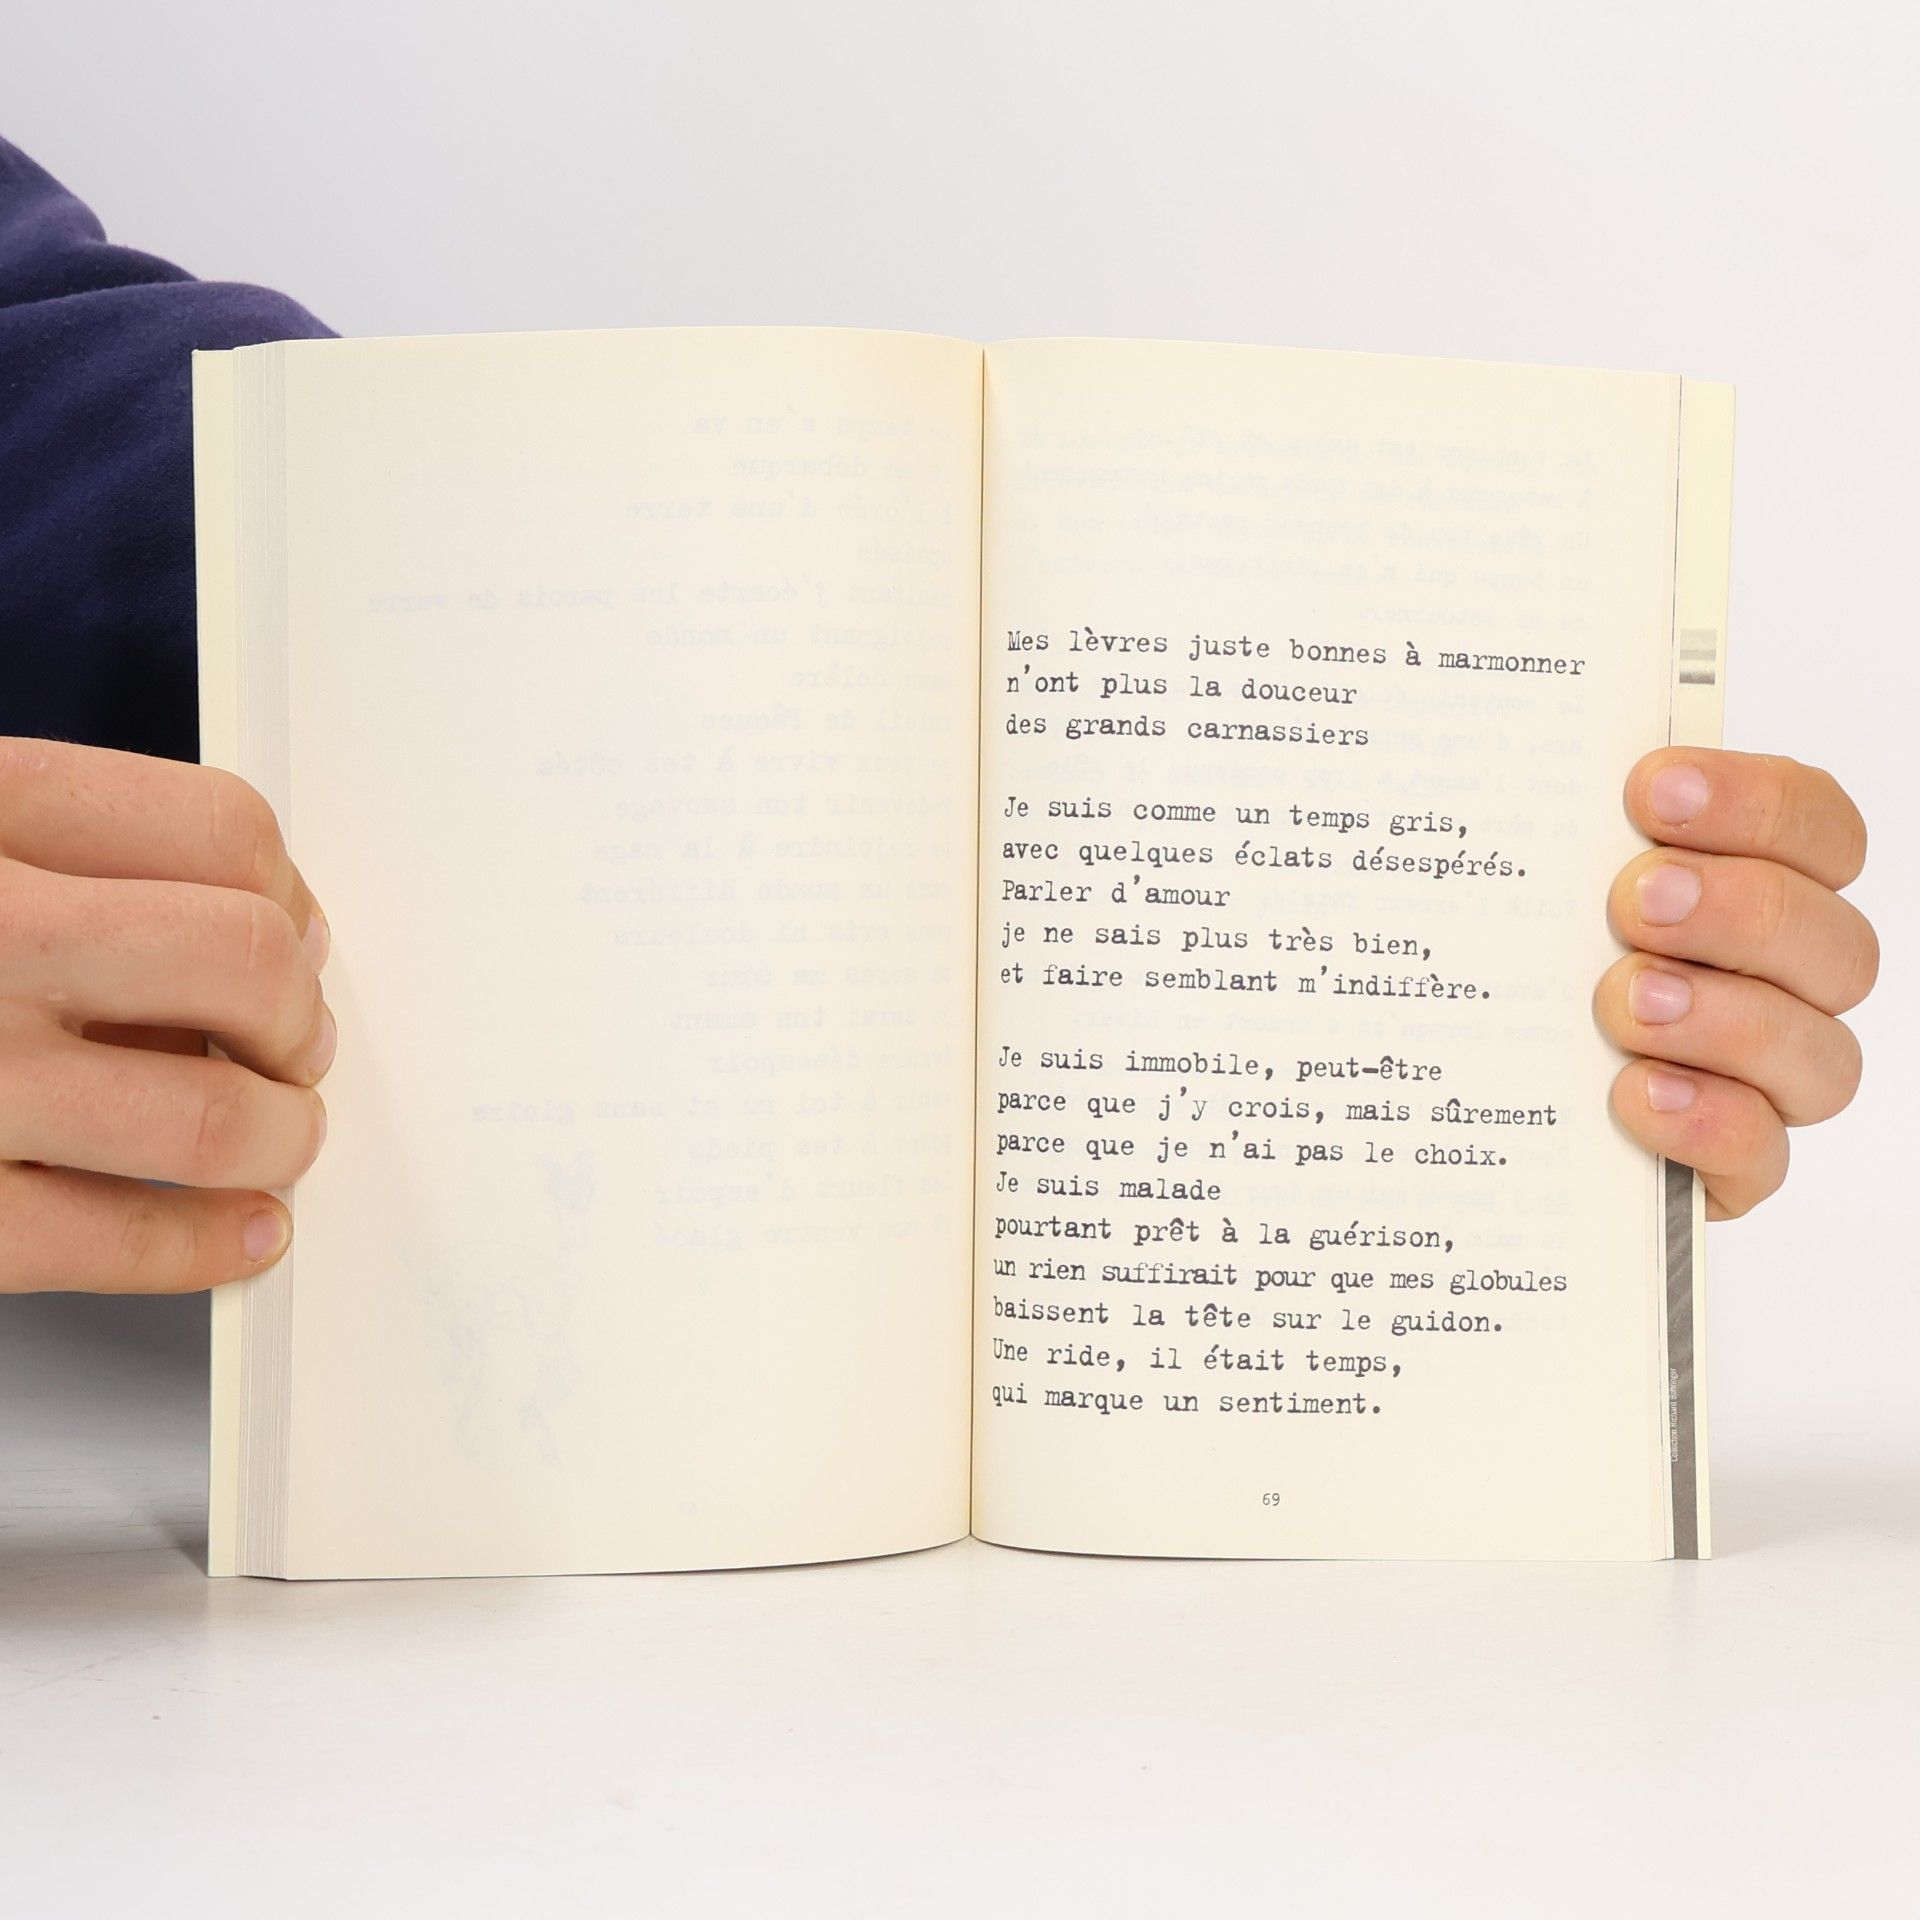 Mes lèvres juste bonnes à marmonner
n'ont plus la douceur
des grands carnassiers
Je suis comme un temps gris,
avec quelques éclats désespérés.
Parler d'amour
je ne sais plus très bien,
et faire semblant m'indiffère.
Je suis immobile, peut-être
parce que j'y crois, mais sûrement
parce que je n'ai pas le choix.
Je suis malade
pourtant prêt à la guérison,
un rien suffirait pour que mes globules
baissent la tête sur le guidon.
Une ride, il était temps,
qui marque un sentiment.
69
Collection Richard Bohringer